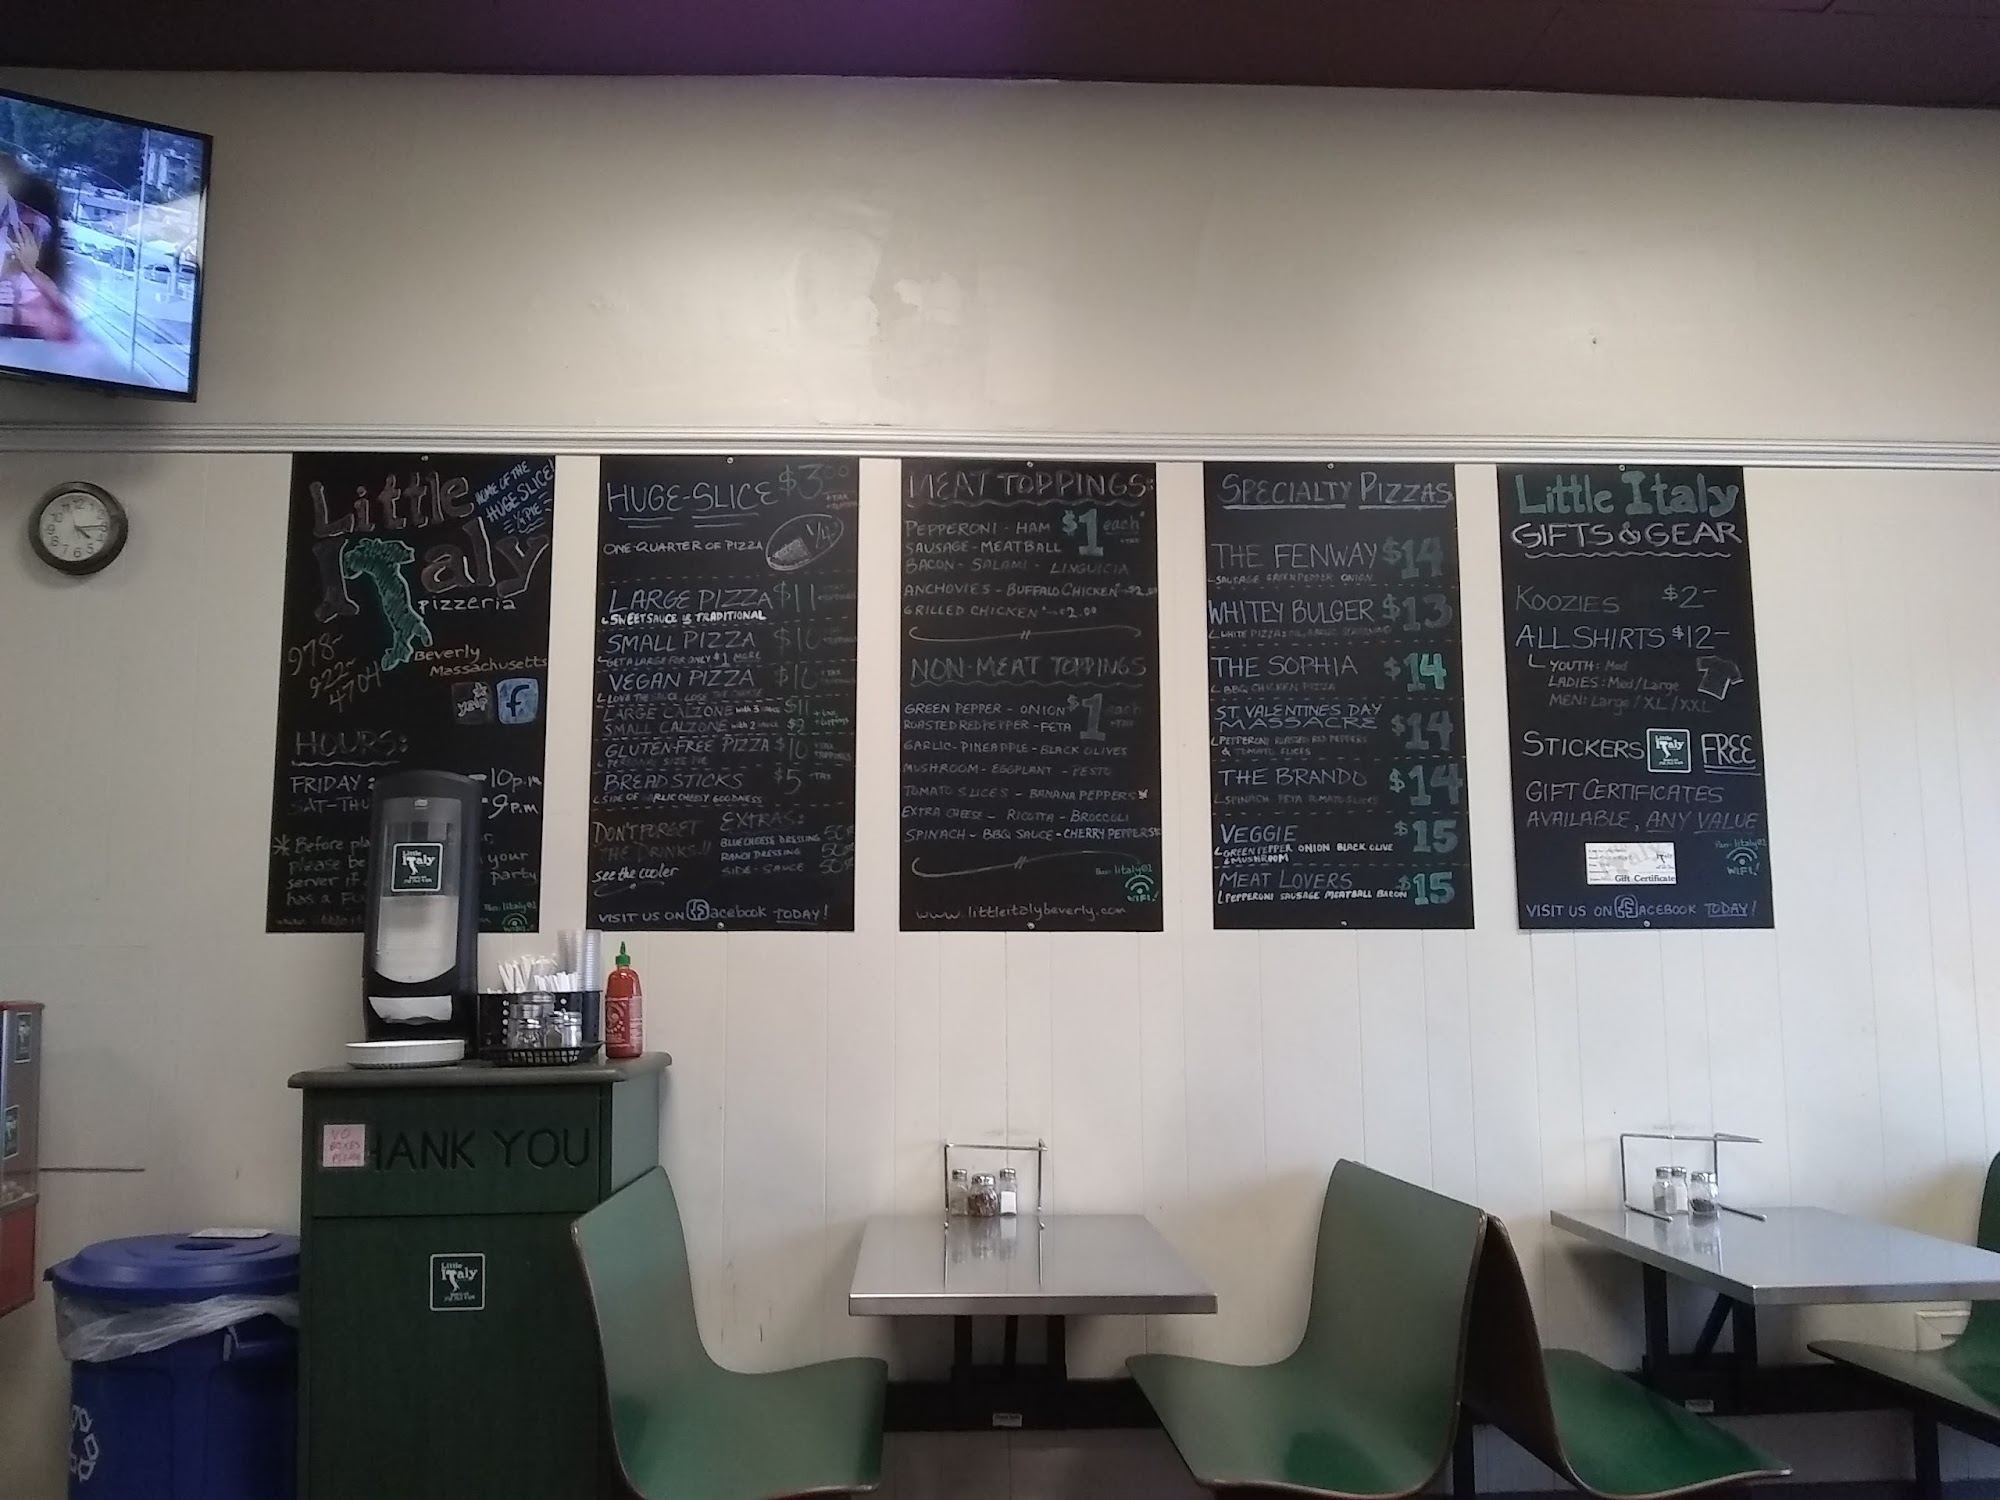 Little
Italy
pizzeria
HOME OF THE
HUGE SLICE!
1/4 PIE
978-
922-
4704
Beverly
Massachusetts
yelp f
HOURS:
FRIDAY: -10p.m
SAT-THU -9p.m
* Before pla
please be your
server if party
has a
Pass: litaly01
WIFI!
HUGE-SLICE $3.00
+TAX
ONE-QUARTER OF PIZZA 1/4
LARGE PIZZA $11
SWEET SAUCE is TRADITIONAL
SMALL PIZZA $10
GET A LARGE FOR ONLY $1 MORE
VEGAN PIZZA $10
LOVE THE SAUCE, LOSE THE CHEESE
LARGE CALZONE with 3 sauce $11
SMALL CALZONE with 2 sauce
GLUTEN-FREE PIZZA $10 +TAX TOPPINGS
PERSONAL SIZE PIE
BREADSTICKS $5 +TAX
SIDE OF GARLIC CHEESY GOODNESS
DON'T FORGET
THE DRINKS!!
see the cooler
EXTRAS:
BLUE CHEESE DRESSING 50¢
RANCH DRESSING 50¢
SIDE-SAUCE 50¢
VISIT US ON facebook TODAY!
MEAT TOPPINGS:
PEPPERONI - HAM $1 each
SAUSAGE - MEATBALL +TAX
BACON - SALAMI - LINGUICIA
ANCHOVIES - BUFFALO CHICKEN $2.00
GRILLED CHICKEN $2.00
NON-MEAT TOPPINGS
GREEN PEPPER - ONION $1 each
ROASTED RED PEPPER - FETA +TAX
GARLIC - PINEAPPLE - BLACK OLIVES
MUSHROOM - EGGPLANT - PESTO
TOMATO SLICES - BANANA PEPPERS
EXTRA CHEESE - RICOTTA - BROCCOLI
SPINACH - BBQ SAUCE - CHERRY PEPPERS
Pass: litaly01
WIFI!
www.littleitalybeverly.com
SPECIALTY PIZZAS
THE FENWAY $14
SAUSAGE GREEN PEPPER ONION
WHITEY BULGER $13
WHITE PIZZA: OIL, GARLIC SEASONING
THE SOPHIA $14
BBQ CHICKEN PIZZA
ST. VALENTINES DAY
MASSACRE $14
PEPPERONI ROASTED RED PEPPERS
& TOMATO SLICES
THE BRANDO $14
SPINACH FETA TOMATO SLICES
VEGGIE $15
GREEN PEPPER ONION BLACK OLIVE
& MUSHROOM
MEAT LOVERS $15
PEPPERONI SAUSAGE MEATBALL BACON
Little Italy
GIFTS & GEAR
KOOZIES $2-
ALL SHIRTS $12-
YOUTH: Med
LADIES: Med/Large
MEN: Large/XL/XXL
STICKERS Little Italy FREE
GIFT CERTIFICATES
AVAILABLE, ANY VALUE
Gift Certificate
Pass: litaly01
WIFI!
VISIT US ON facebook TODAY!
Little
Italy
NO
BOXES
PLEASE
HANK YOU
Little
Italy